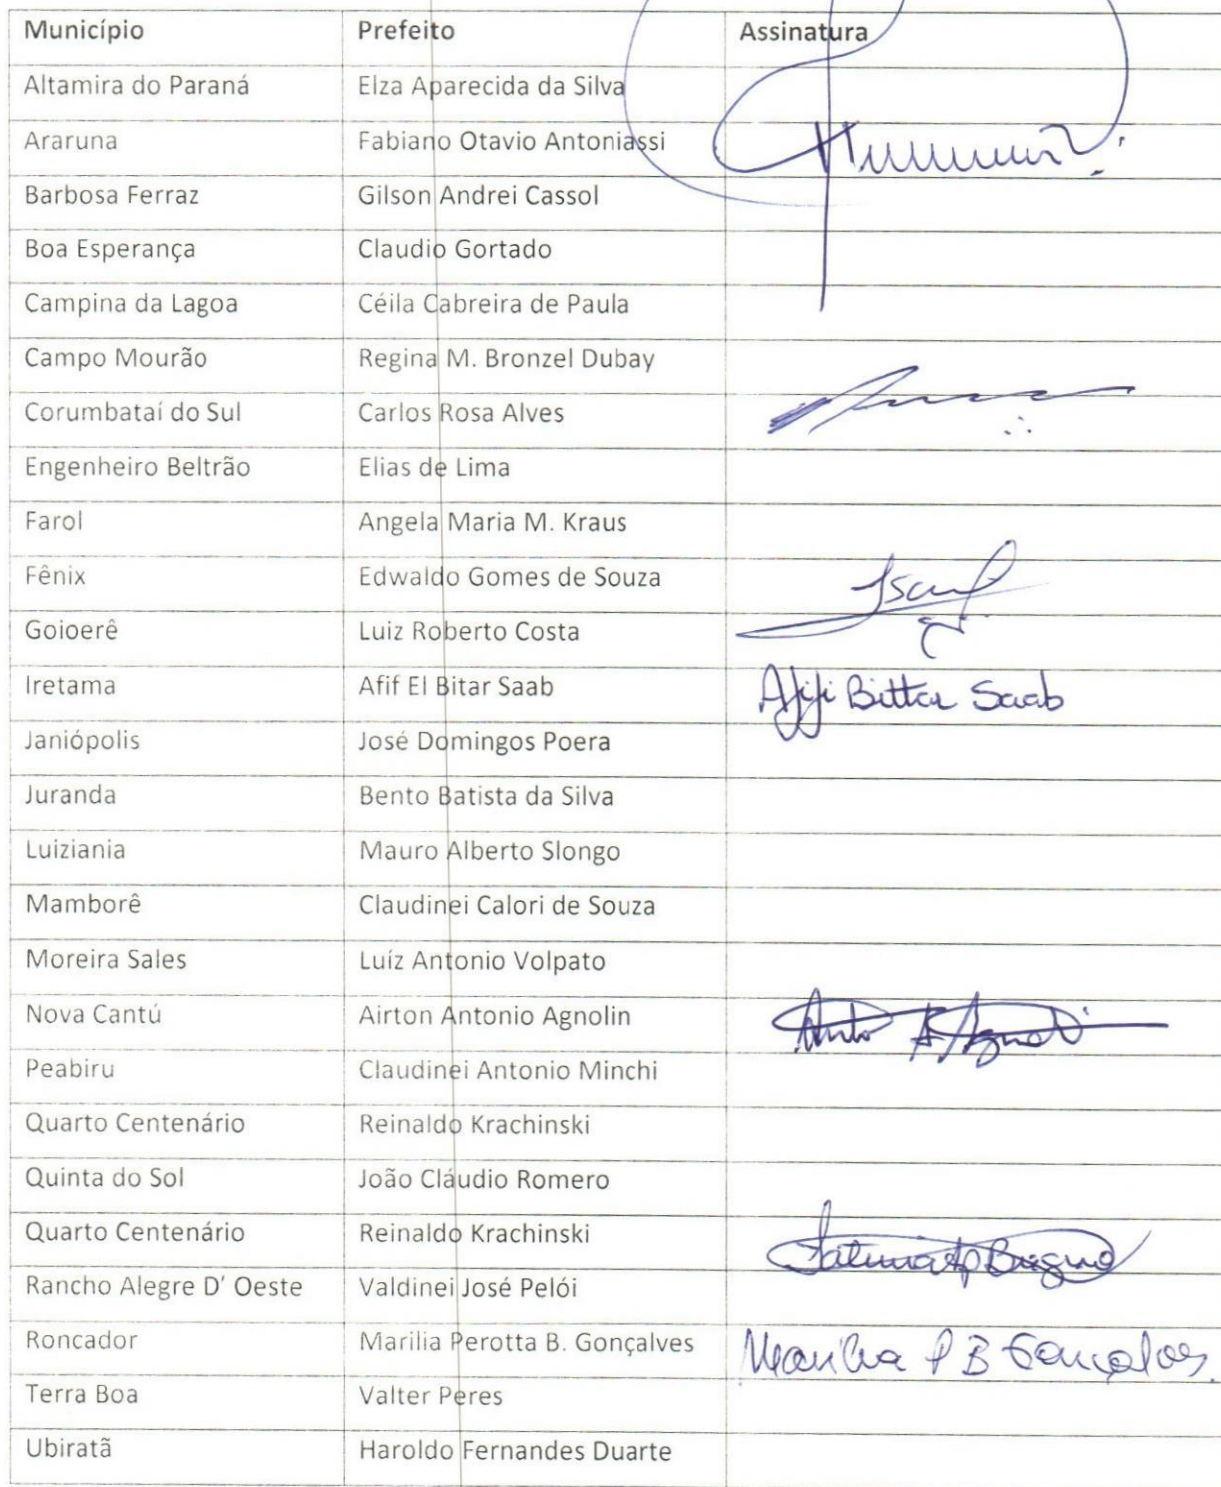 Município Prefeito Assinatura
Altamira do Paraná Elza Aparecida da Silva
Araruna Fabiano Otavio Antoniassi
Barbosa Ferraz Gilson Andrei Cassol
Boa Esperança Claudio Gortado
Campina da Lagoa Céila Cabreira de Paula
Campo Mourão Regina M. Bronzel Dubay
Corumbataí do Sul Carlos Rosa Alves
Engenheiro Beltrão Elias de Lima
Farol Angela Maria M. Kraus
Fênix Edwaldo Gomes de Souza
Goioerê Luiz Roberto Costa
Iretama Afif El Bitar Saab Afifi Bittar Saab
Janiópolis José Domingos Poera
Juranda Bento Batista da Silva
Luiziania Mauro Alberto Slongo
Mamborê Claudinei Calori de Souza
Moreira Sales Luíz Antonio Volpato
Nova Cantú Airton Antonio Agnolin
Peabiru Claudinei Antonio Minchi
Quarto Centenário Reinaldo Krachinski
Quinta do Sol João Cláudio Romero
Quarto Centenário Reinaldo Krachinski
Rancho Alegre D' Oeste Valdinei José Pelói
Roncador Marilia Perotta B. Gonçalves Marilia P B Gonçalves
Terra Boa Valter Peres
Ubiratã Haroldo Fernandes Duarte